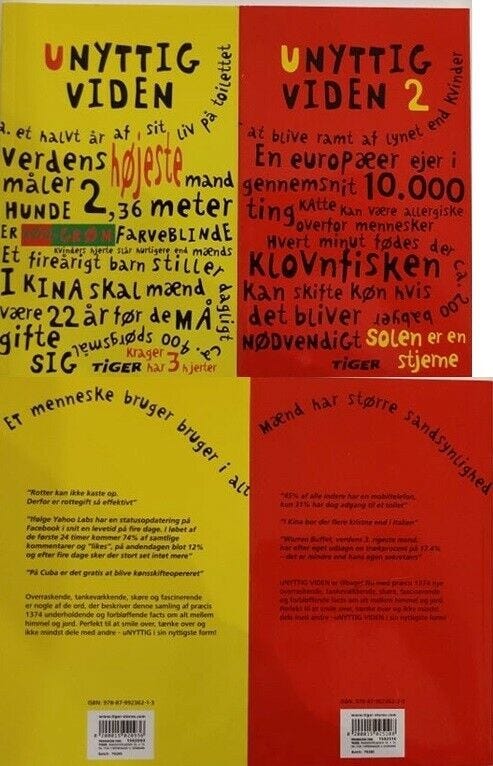 UNYTTIG
VIDEN
a. et halvt år af sit liv på toilettet
verdens højeste mand
måler 2,36 meter
HUNDE
ER RØD-GRØN FARVEBLINDE
Kvinders hjerte slår hurtigere end mænds
Et fireårigt barn stiller
I KINA SKAL mænd
være 22 år før de MÅ
gifte
SIG
ca. 400 spørgsmål dagligt
TIGER
Krager
har 3 hjerter
UNYTTIG
VIDEN 2
at blive ramt af lynet end kvinder
En europæer ejer i
gennemsnit 10.000
ting
KAtte kan være allergiske
overfor mennesker
Hvert minut fødes der ca. 200 babyer
Klovnfisken
kan skifte køn hvis
det bliver
NØDVENDIGT
SOLEN er en
stjerne
TIGER
Et menneske bruger bruger i alt
"Rotter kan ikke kaste op.
Derfor er rottegift så effektivt"
"Ifølge Yahoo Labs har en statusopdatering på
Facebook i snit en levetid på fire dage. I løbet af
de første 24 timer kommer 74% af samtlige
kommentarer og "likes", på andendagen blot 12%
og efter fire dage sker der stort set intet mere"
"På Cuba er det gratis at blive kønsskifteopereret"
Overraskende, tankevækkende, skøre og fascinerende
er nogle af de ord, der beskriver denne samling af præcis
1374 underholdende og forbløffende facts om alt mellem
himmel og jord. Perfekt til at smile over, tænke over og
ikke mindst dele med andre - uNYTTIG i sin nyttigste form!
ISBN: 978-87-992362-1-3
www.tiger-stores.com
Mænd har større sandsynlighed
"45% af alle indere har en mobiltelefon,
kun 31% har dog adgang til et toilet"
"I Kina bor der flere kristne end i Italien"
"Warren Buffet, verdens 3. rigeste mand,
har efter eget udsagn en trækprocent på 17,4%
- det er mindre end hans egen sekretær"
uNYTTIG VIDEN er tilbage! Nu med præcis 1374 nye
overraskende, tankevækkende, skøre, fascinerende
og forbløffende facts om alt mellem himmel og jord.
Perfekt til at smile over, tænke over og ikke mindst
dele med andre - uNYTTIG i sin nyttigste form!
www.tiger-stores.com